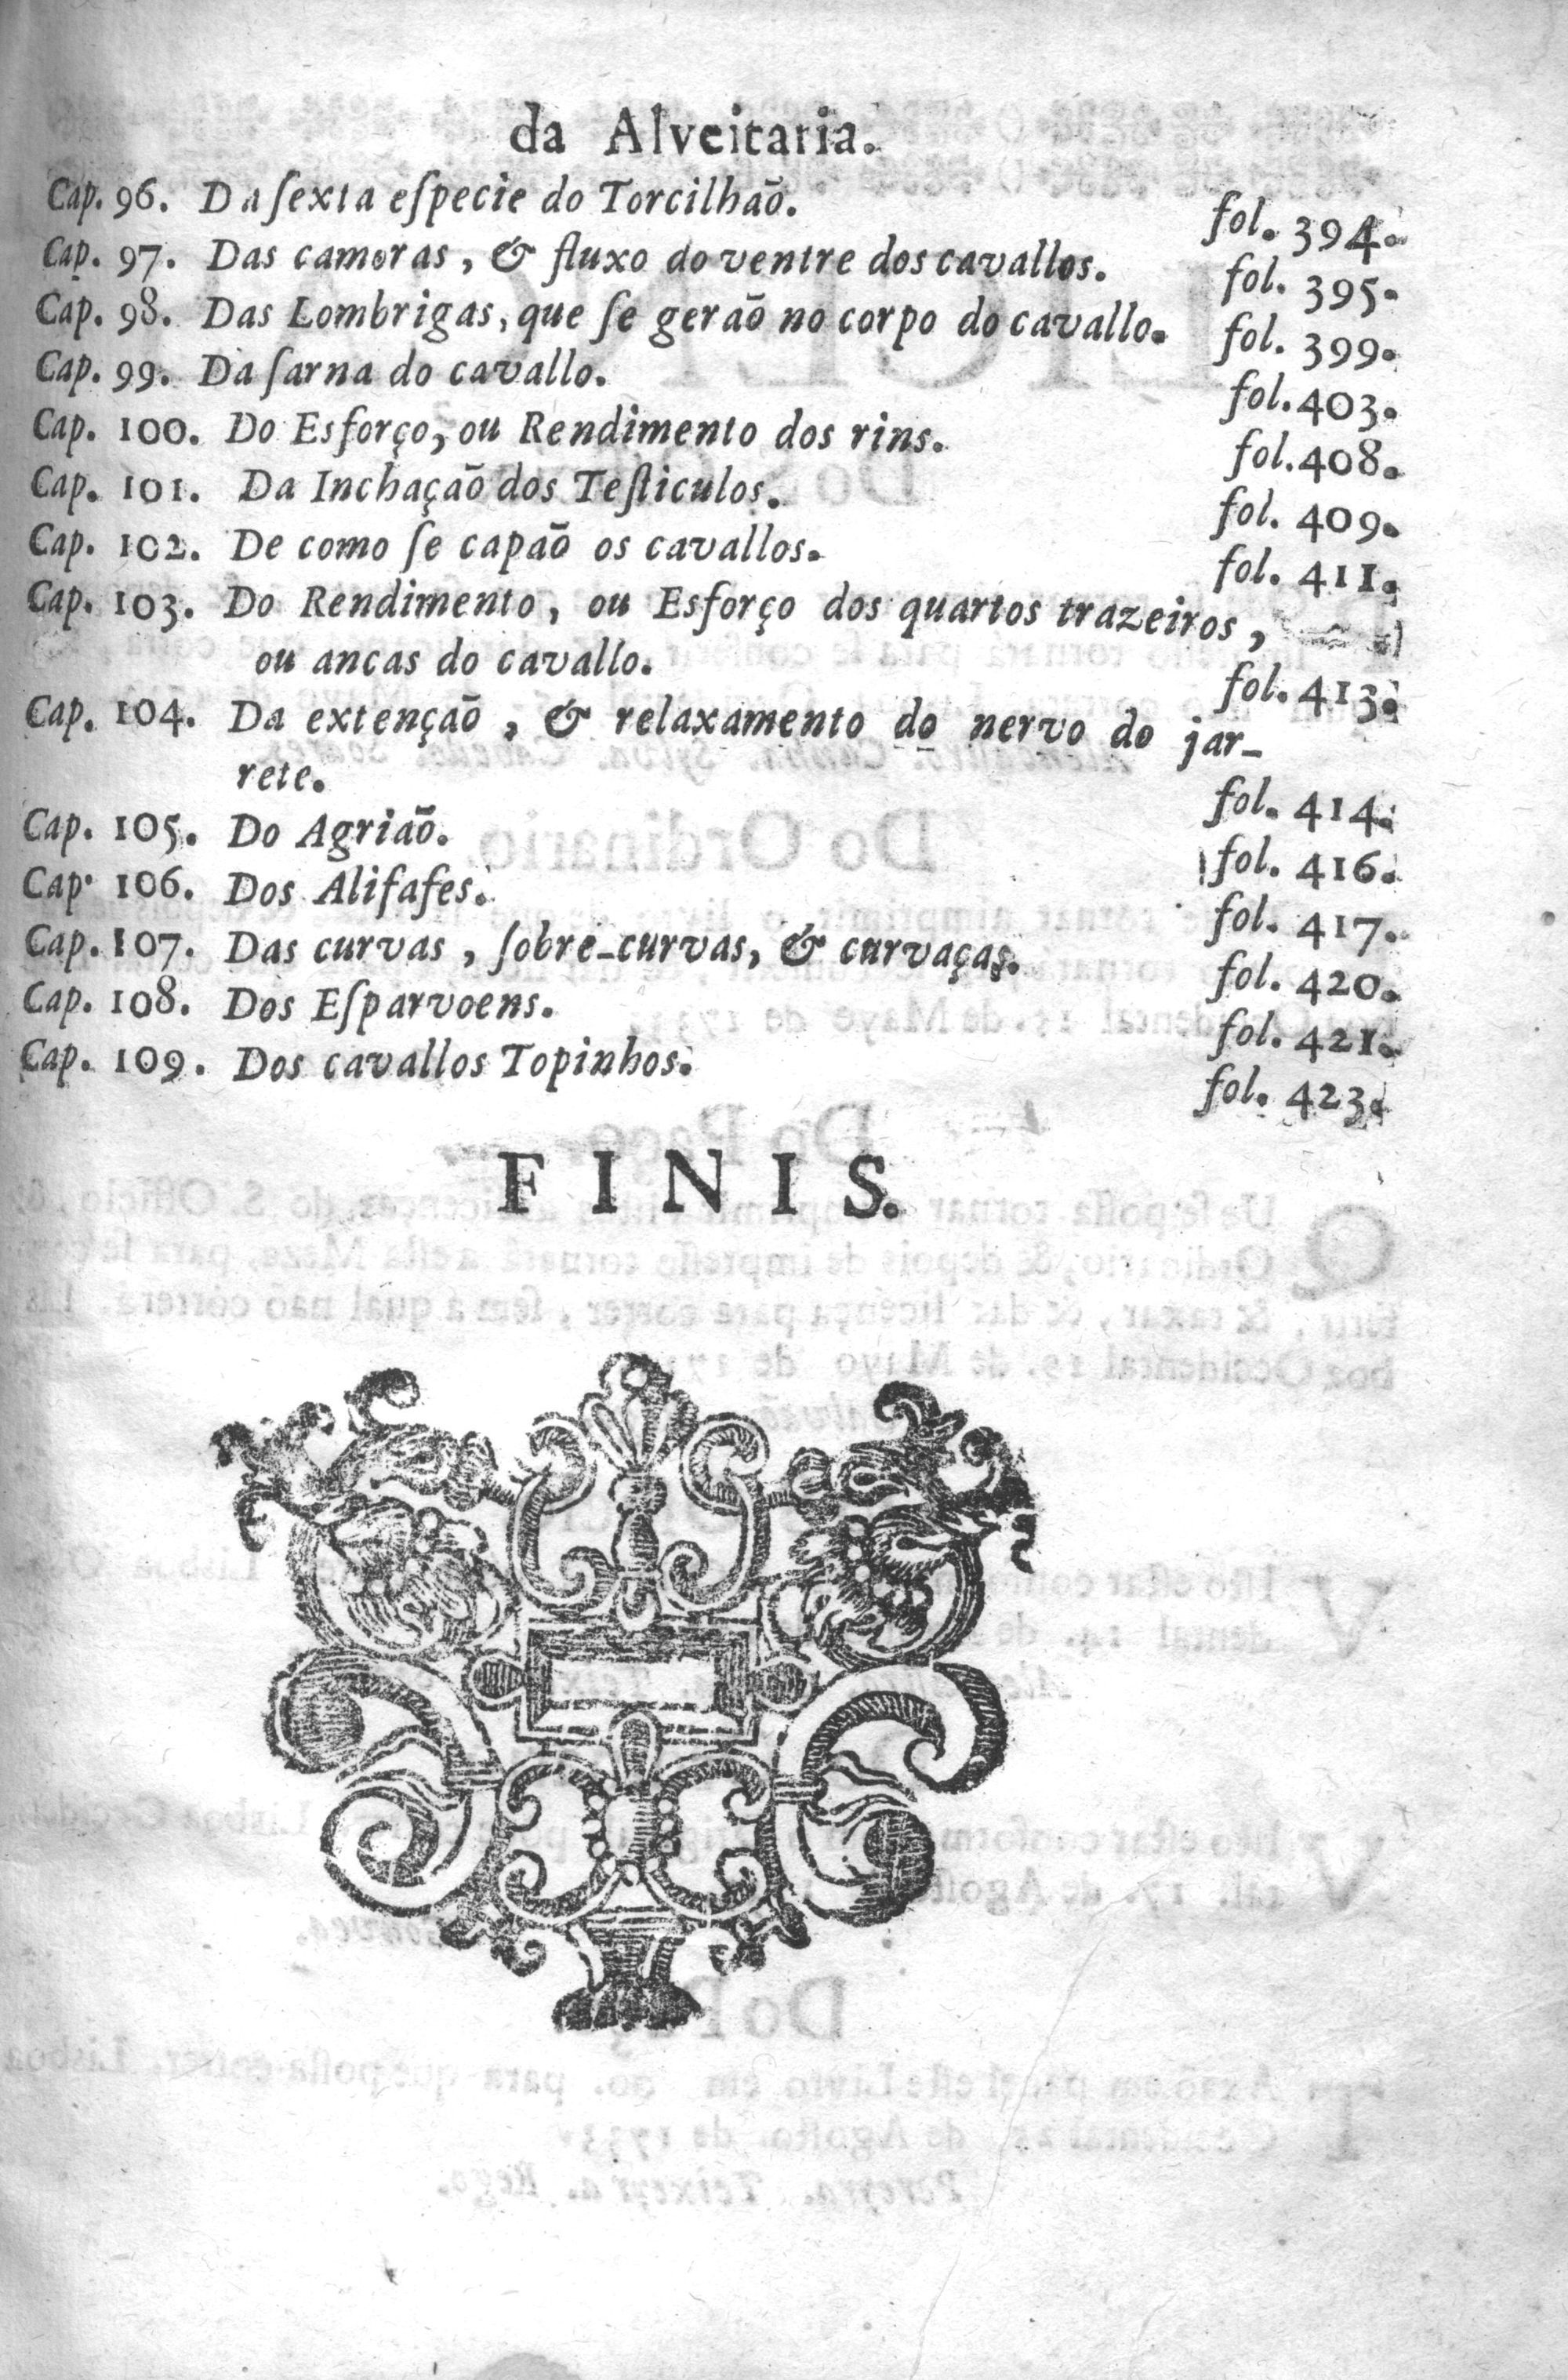 da Alveitaria.
Cap. 96. Da ſexta eſpecie do Torcilhaõ. fol. 394.
Cap. 97. Das cameras, & fluxo do ventre dos cavallos. fol. 395.
Cap. 98. Das Lombrigas, que ſe geraõ no corpo do cavallo. fol. 399.
Cap. 99. Da ſarna do cavallo. fol. 403.
Cap. 100. Do Esforço, ou Rendimento dos rins. fol. 408.
Cap. 101. Da Inchaçaõ dos Teſticulos. fol. 409.
Cap. 102. De como ſe capaõ os cavallos. fol. 411.
Cap. 103. Do Rendimento, ou Esforço dos quartos trazeiros,
ou ancas do cavallo. fol. 413.
Cap. 104. Da extençaõ, & relaxamento do nervo do jar-
rete. fol. 414.
Cap. 105. Do Agriaõ. fol. 416.
Cap. 106. Dos Alifafes. fol. 417.
Cap. 107. Das curvas, ſobre-curvas, & curvaças. fol. 420.
Cap. 108. Dos Eſparvoens. fol. 421.
Cap. 109. Dos cavallos Topinhos. fol. 423.
FINIS.